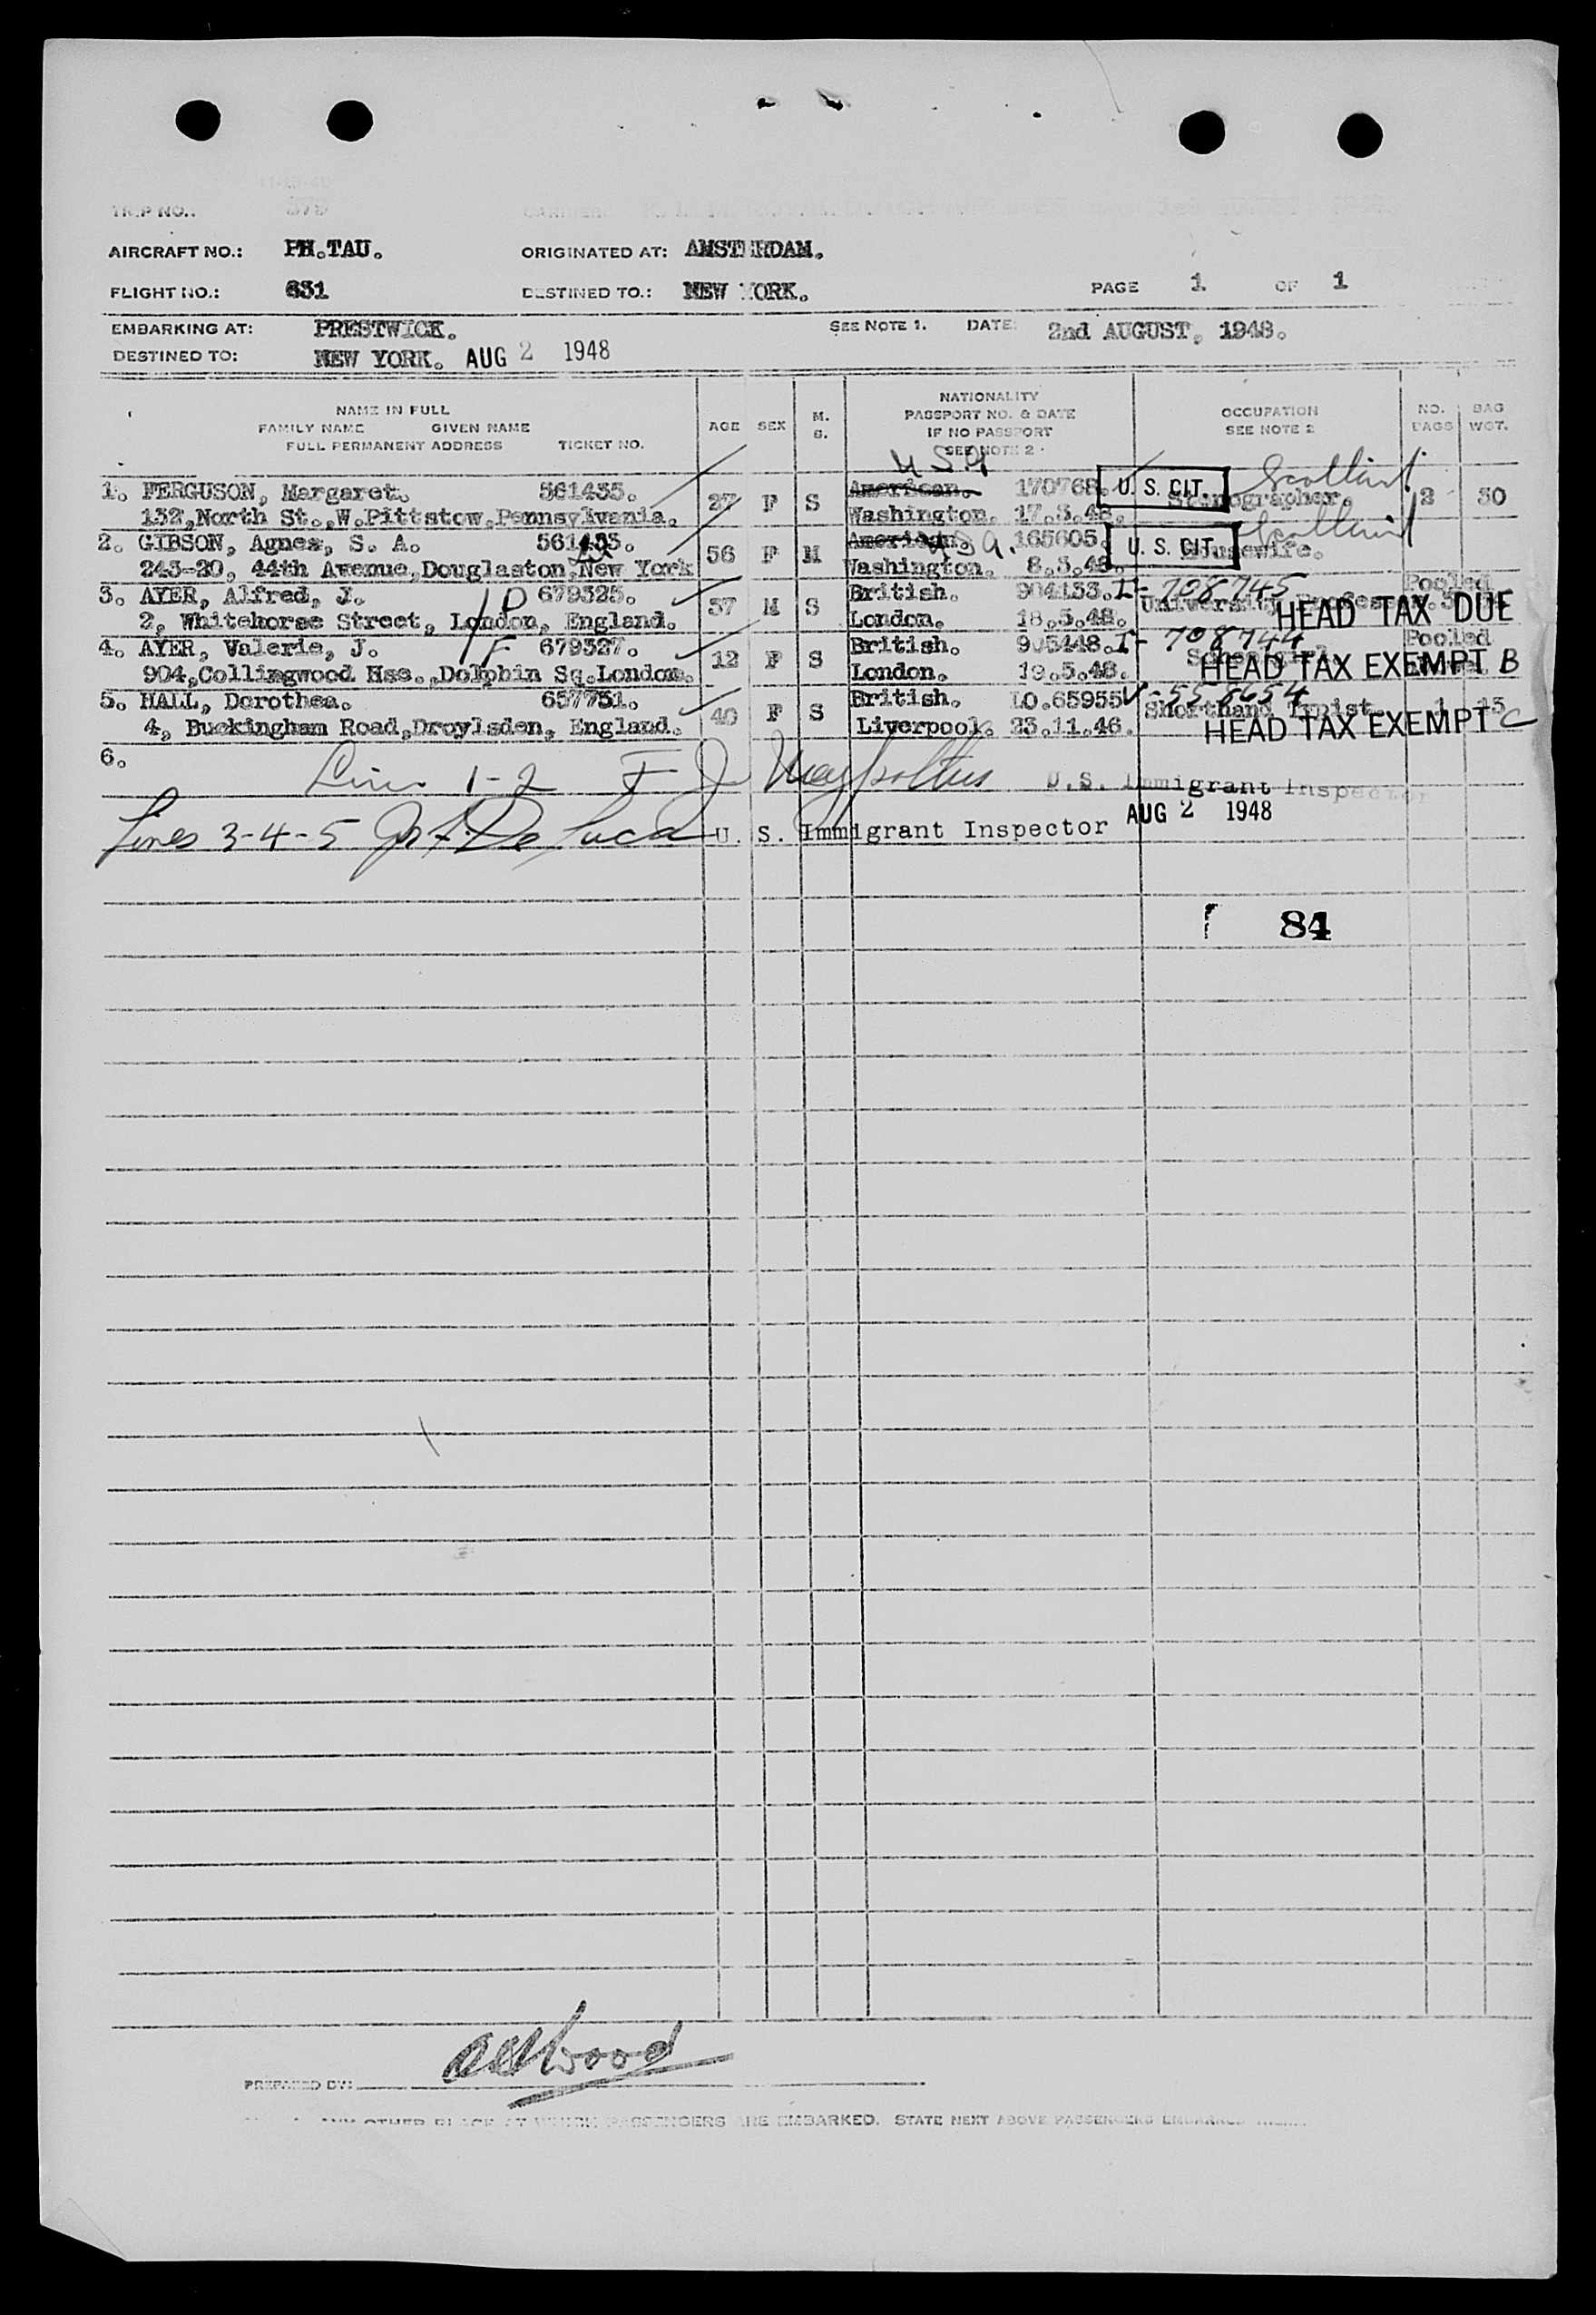 TRIP NO.: 379
AIRCRAFT NO.: PH.TAU. ORIGINATED AT: AMSTERDAM.
FLIGHT NO.: 631 DESTINED TO.: NEW YORK. PAGE 1 OF 1
EMBARKING AT: PRESTWICK. SEE NOTE 1. DATE: 2nd AUGUST, 1948.
DESTINED TO: NEW YORK. AUG 2 1948
NAME IN FULL
FAMILY NAME GIVEN NAME
FULL PERMANENT ADDRESS TICKET NO.
AGE SEX M. S.
NATIONALITY
PASSPORT NO. & DATE
IF NO PASSPORT
SEE NOTE 2
OCCUPATION
SEE NOTE 2
NO. BAGS
BAG WGT.
U S A
1. FERGUSON, Margaret. 561435. 27 F S American. 170768. U. S. CIT. Stenographer. Scotland 2 30
132,North St.,W.Pittstow.Pennsylvania. Washington. 17.3.48.
2. GIBSON, Agnes, S. A. 561433. 56 F M American. U S A. 165605. U. S. CIT. Housewife. Scotland
243-20, 44th Avenue,Douglaston,New York Washington. 8.3.48.
3. AYER, Alfred, J. 679325. 37 M S British. 904133. I-708745 Pooled
2, Whitehorse Street, London, England. London. 18.5.48. University Professor. HEAD TAX DUE
4. AYER, Valerie, J. 679327. 12 F S British. 905448. I-708744 Pooled
904,Collingwood Hse.,Dolphin Sq.London. London. 19.5.48. Schoolgirl. HEAD TAX EXEMPT B
5. HALL, Dorothea. 657751. 40 F S British. LO.65955 V-558654 Shorthand Typist. 1 15
4, Buckingham Road,Droylsden, England. Liverpool. 23.11.46. HEAD TAX EXEMPT C
6.
Lines 1-2 F J U.S. Immigrant Inspector
AUG 2 1948
Lines 3-4-5 De Luca U. S. Immigrant Inspector
84
PREPARED BY:
ANY OTHER PLACE AT WHICH PASSENGERS ARE EMBARKED. STATE NEXT ABOVE PASSENGERS EMBARKED